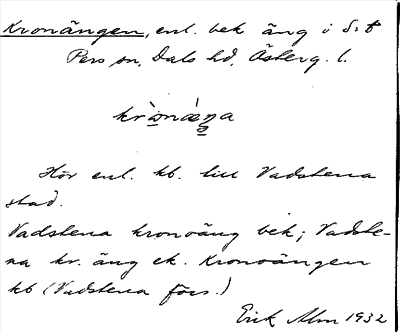 Kronängen, enl. bek äng i S:t
Pers sn, Dals hd, Österg. l.
kr̀ònǽŋa
Hör enl. kb. till Vadstena
stad.
Vadstena kronoäng bek; Vadste-
na kr. äng ek. Kronoängen
kb (Vadstena förs.)
Erik Alm 1932